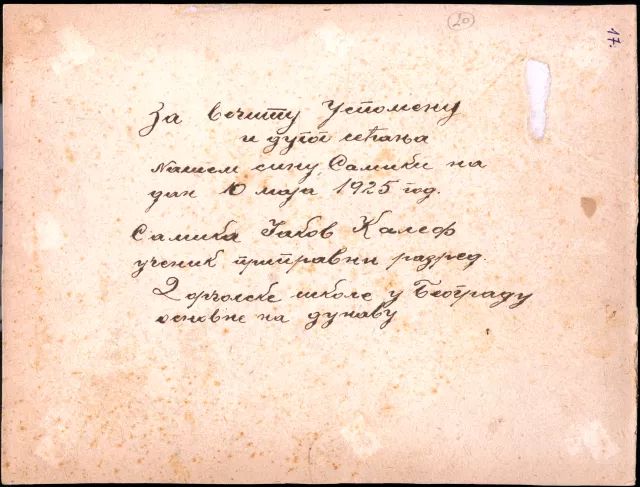 20
17.
За вечиту Успомену
и дугог сећања
Нашем сину, Самики на
дан 10 маја 1925 год.
Самика Јаков Калеф
ученик приправни разред.
2 орчолске школе у Београду
основне на дунаву